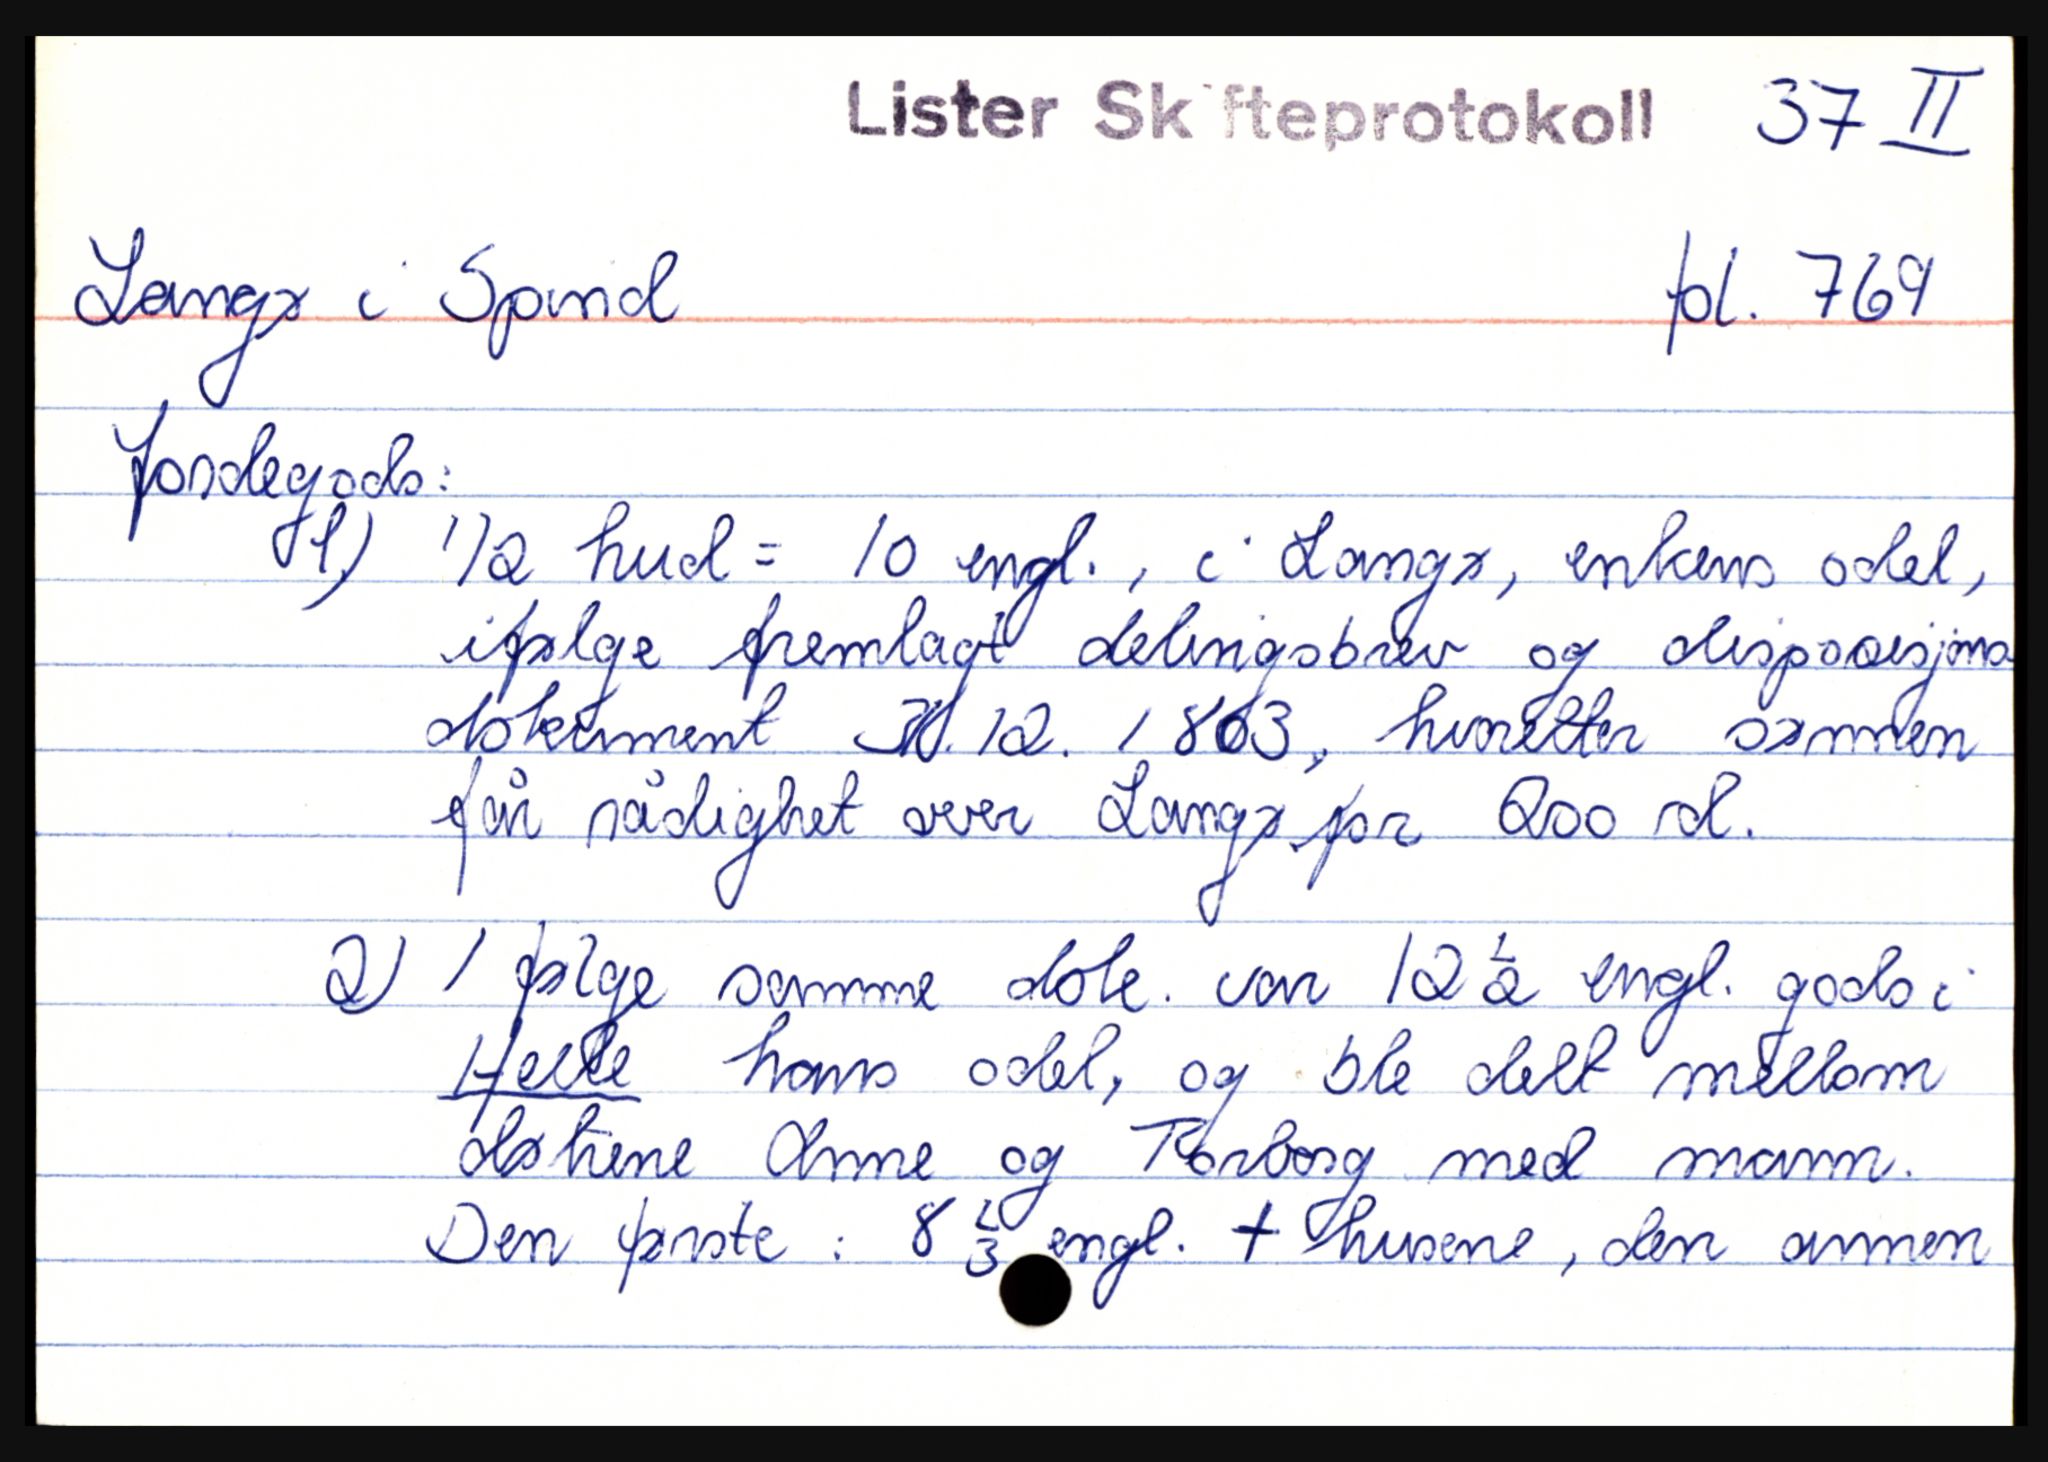 Lister Skifteprotokoll 37 II
Langø i Spind fol. 769
Jordegods:
1) 1/2 hud = 10 engl., i Langø, enkens odel,
ifølge fremlagt delingsbrev og disposisjons
dokument 12. 1803, hvoretter sønnen
får rådighet over Langø for 200 rd.
2) I følge samme dok. var 12 1/2 engl. gods i
Helle hans odel, og ble delt mellom
døtrene Anne og Torborg med mann.
Den første : 8 1/3 engl. + husene, den annen